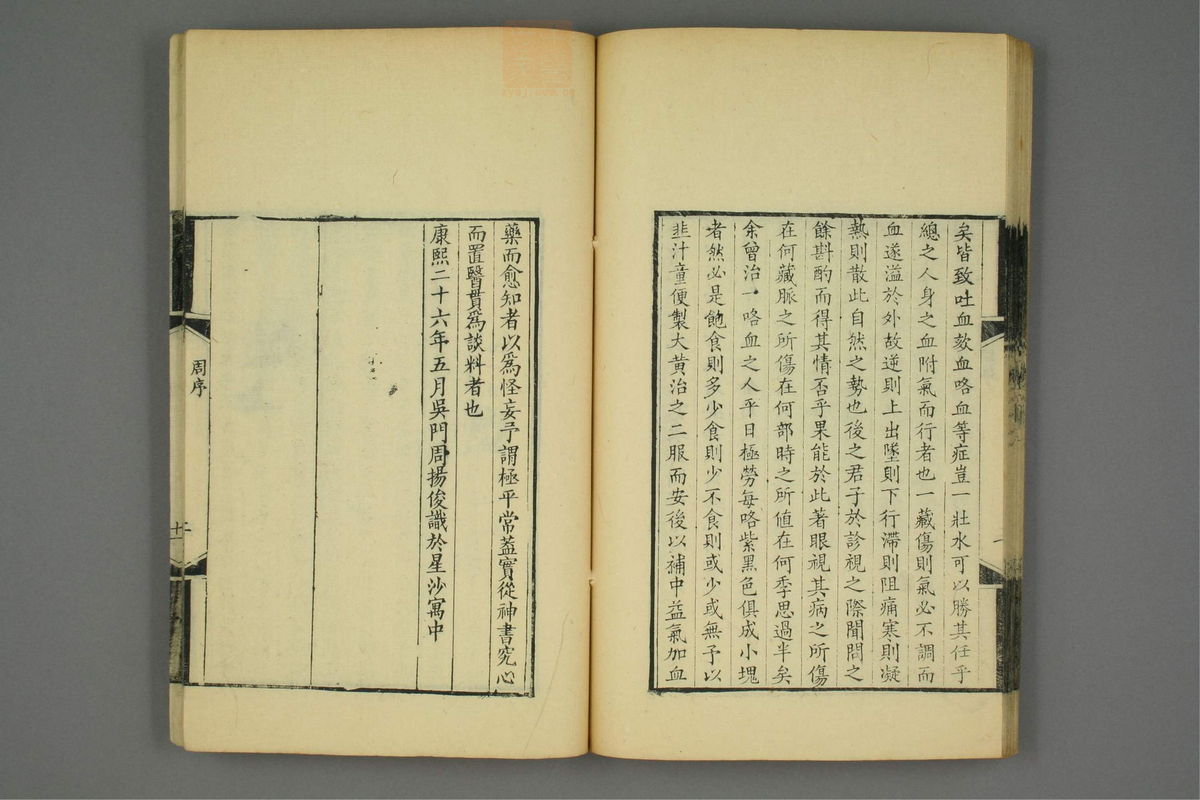 矣皆致吐血欬血咯血等症豈一壯水可以勝其任乎
總之人身之血附氣而行者也一藏傷則氣必不調而
血遂溢於外故逆則上出墜則下行滯則阻痛寒則凝
熱則散此自然之勢也後之君子於診視之際聞問之
餘斟酌而得其情否乎果能於此著眼視其病之所傷
在何藏脈之所傷在何部時之所值在何季思過半矣
余曾治一咯血之人平日極勞每咯紫黑色俱成小塊
者然必是飽食則多少食則少不食則或少或無予以
韭汁童便製大黃治之二服而安後以補中益氣加血
藥而愈知者以爲怪妄予謂極平常蓋實從神書究心
而置醫貫爲談料者也
康熙二十六年五月吳門周揚俊識於星沙寓中
周序